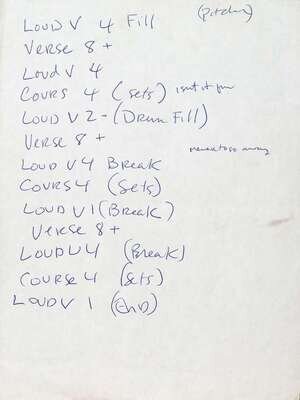 LOUD V 4 Fill
Verse 8 +
Loud V 4
COURS 4 (sets)
LOUD V 2 - (Drum Fill)
Verse 8 +
LOUD V4 Break
COURS 4 (Sets)
LOUD V1 (Break)
Verse 8 +
LOUD V4 (Break)
COURSE 4 (Sets)
LOUD V 1 (End)